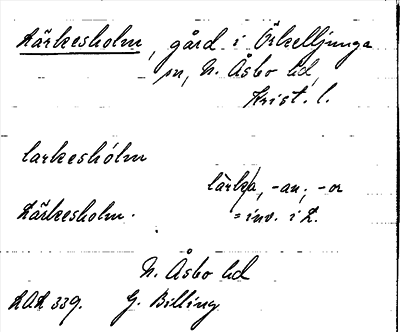 Lärkesholm, gård i Örkelljunga
sn, N. Åsbo hd,
Krist. l.
larkeshólm
lärka, -an, -or
Lärkesholm. = inv. i L.
N. Åsbo hd
LAL 339. G. Billing